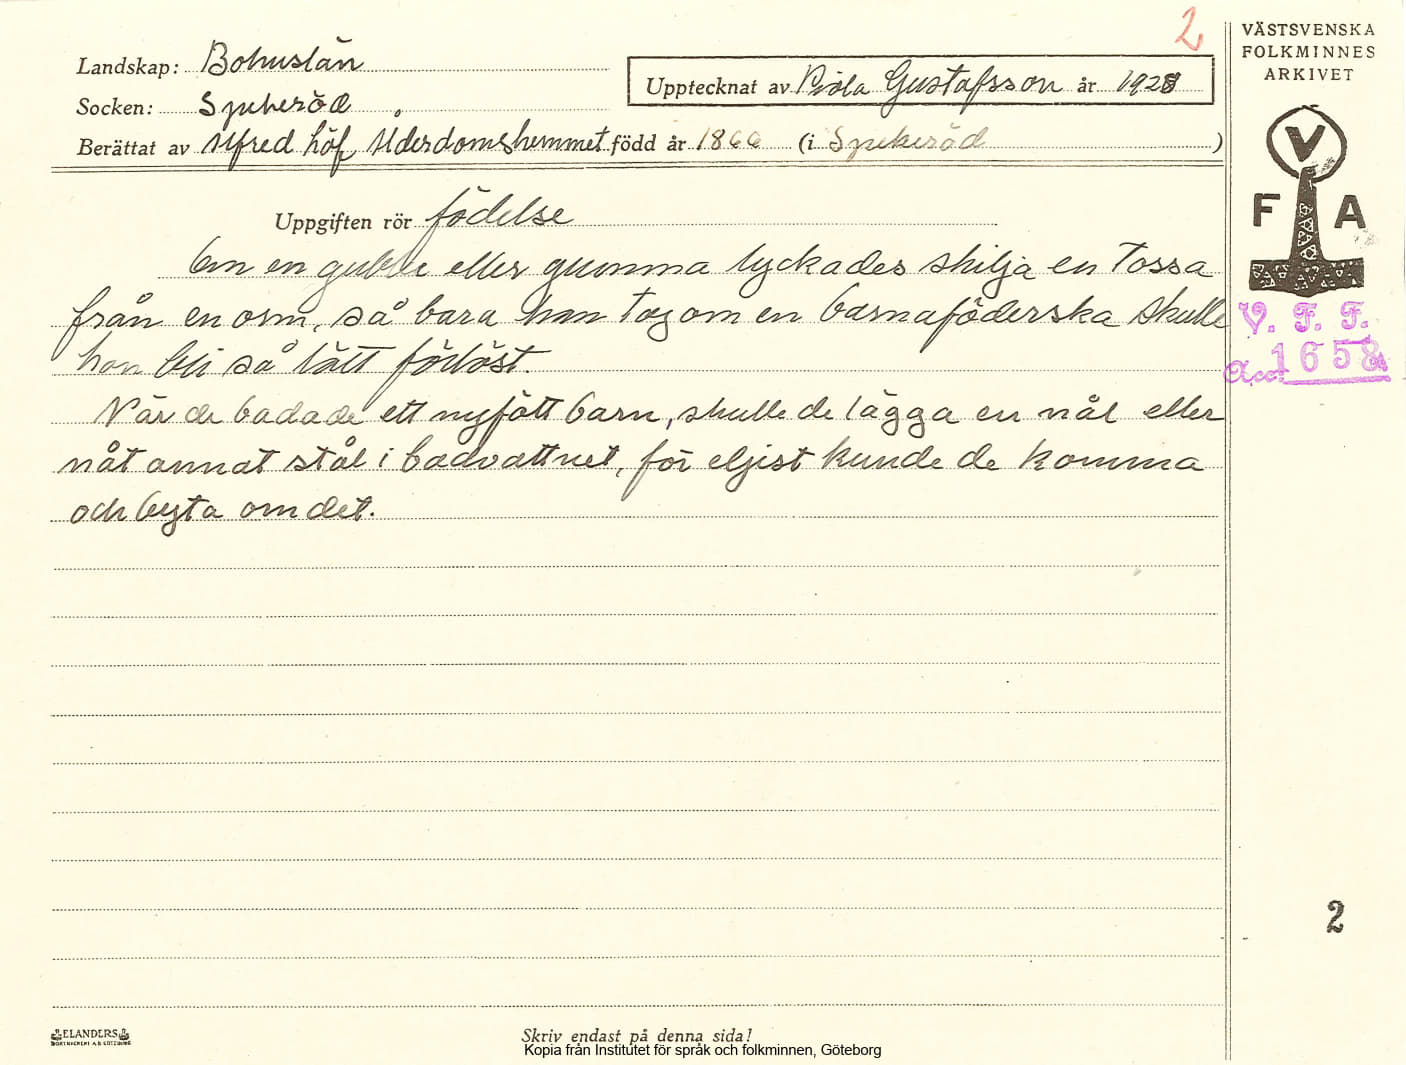 2
VÄSTSVENSKA
FOLKMINNES
ARKIVET
Landskap: Bohuslän
Upptecknat av Viola Gustafsson år 1928
Socken: Spekeröd
Berättat av Alfred Löf Ålderdomshemmet född år 1866 (i Spekeröd )
V
F A
V. F. F.
Acc. 1658
Uppgiften rör födelse
Om en gubbe eller gumma lyckades skilja en tossa
från en orm, så bara han tog om en barnaföderska skulle
hon bli så lätt förlöst.
När de badade ett nyfött barn, skulle de lägga en nål eller
nåt annat stål i badvattnet, för eljist kunde de komma
och byta om det.
2
ELANDERS
BOKTRYCKERI A.B. GÖTEBORG
Skriv endast på denna sida!
Kopia från Institutet för språk och folkminnen, Göteborg